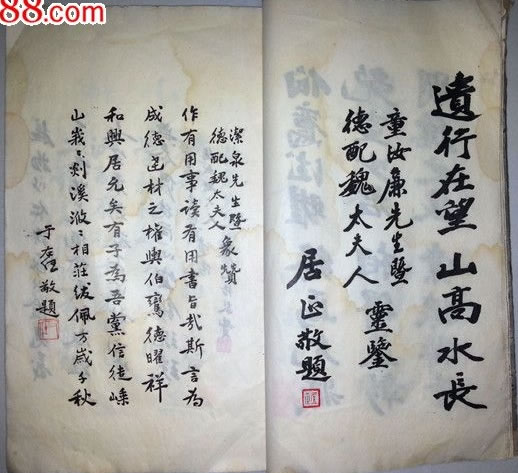 88.com
遺行在望山高水長
童汝廉先生暨
德配魏太夫人靈鑒
居正敬題
潔泉先生暨
德配魏太夫人象贊
作有用事讀有用書旨哉斯言為
成德達材之權輿伯鸞德曜祥
和興居允矣有子為吾黨信徒嵊
山峩〻剡溪瀰〻相莊紱佩万歲千秋
于右任敬題